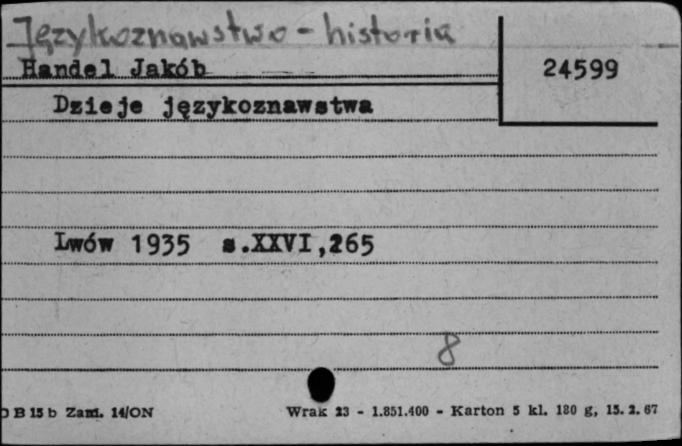 Językoznawstwo - historia
Handel Jakób
24599
Dzieje językoznawstwa
Lwów 1935 s.XXVI,265
8
D B 15 b Zam. 14/ON
Wrak 23 - 1.851.400 - Karton 5 kl. 180 g, 15. 2. 67